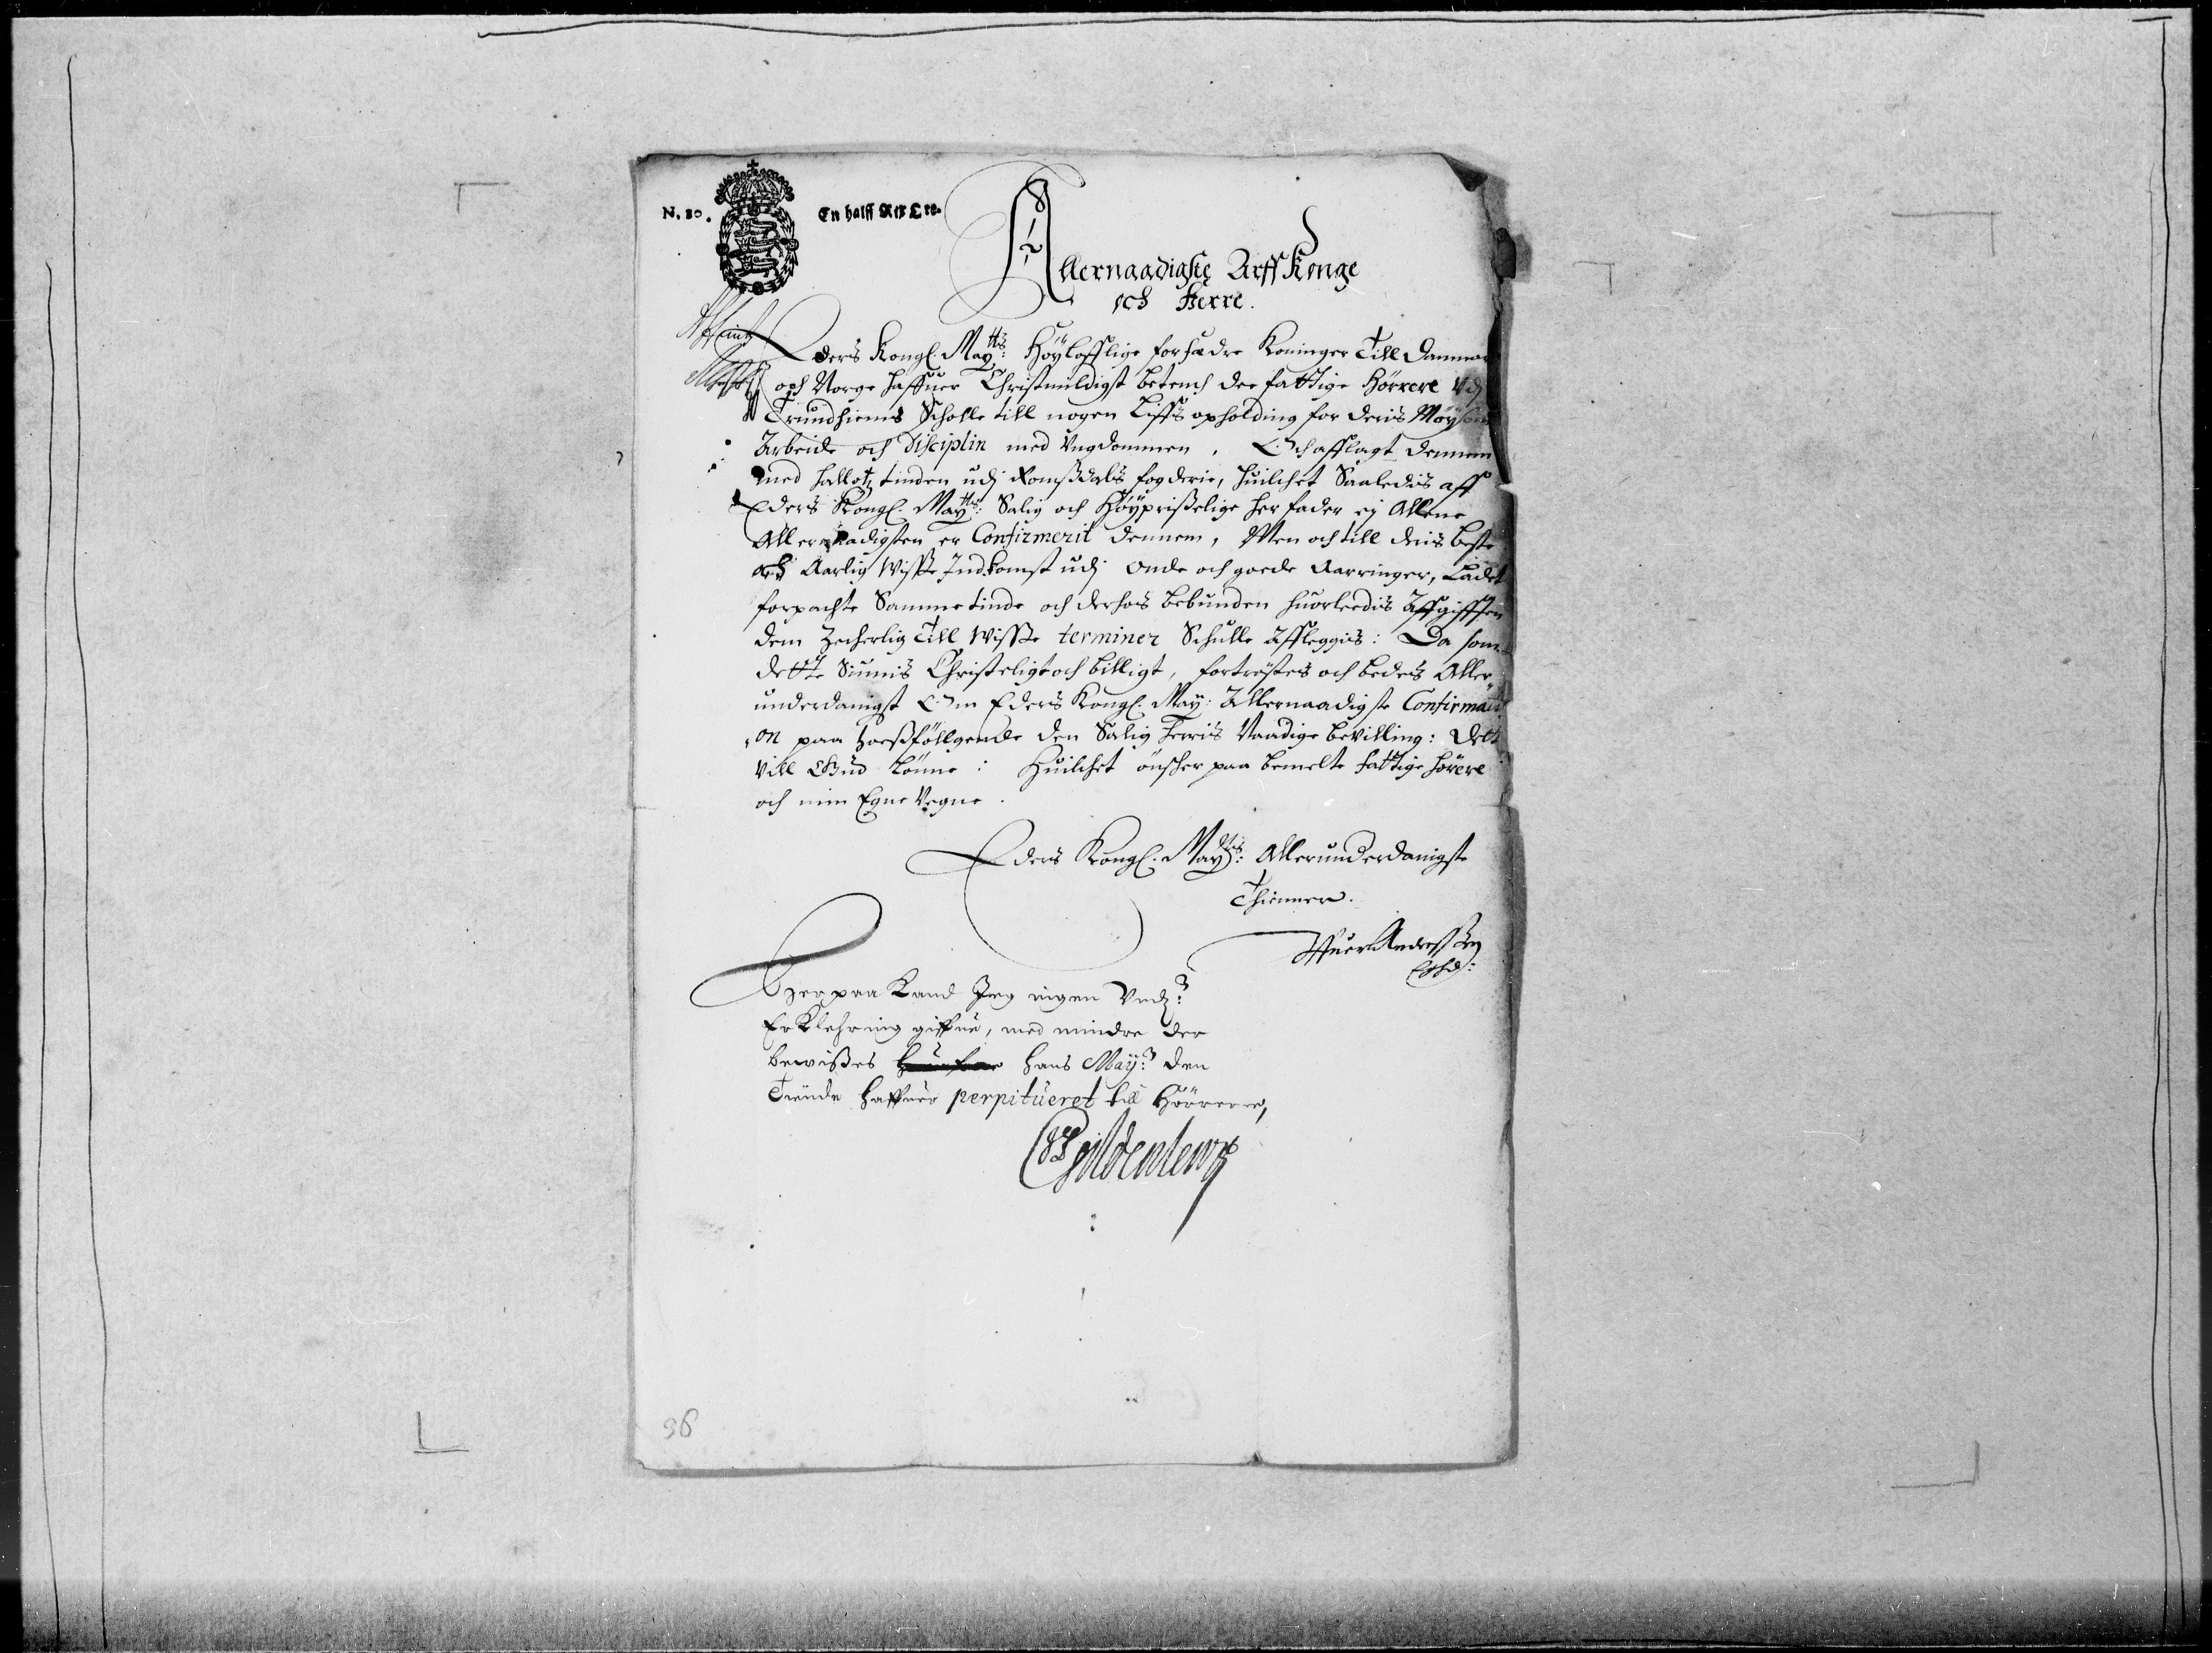 N. 30.
En halff Rix Ort.
Allernaadigste Arff Konge
och Herre.
Eders Kongl. Maytts: Höyloflige forfædre Koninger Till Danmar
och Norge haffuer Christmildigst betench dee fattige Hörrere Vdj
Trundhiems Scholle till nogen Liffs opholding for deris Möysom
Arbeide och disciplin med Vngdommen, Och afflagt dennem
med halfot tinden udj Romssdals fogderie, huilchet Saaledis aff
Eders Kongl. Maytts: Salig och Höyprisselige Her fader ej Allene
Allernaadigsten er Confirmerit dennem, Men och till deris beste
och Aarlig Wisse Indkomst udj onde och goede Aarringer, Ladet
forpachte Samme tinde och derhos bebunden huorledis Affgifften
dem Zecherlig Till Wisse terminer Schulle Affleggis: Da som
dette Siunis Christeligt och billigt, fortröstes och bedes Aller
underdanigst Om Eders Kongl. May: Allernaadigste Confirmati
on paa hoessföllgende den Salig Herris Naadige bevilling: Dett
vill Gud lönne: Huilchet önscher paa bemelte fattige hörere
och min Egne Vegne.
Eders Kongl. Maytts: Allerunderdanigste
Thienner.
Iffuer Anderssen
Herpaa Kand Jeg ingen Vnd:
Erklehring giffue, med mindre der
bewisses hans May: den
Tiende haffuer perpitueret till Hörrerne,
Gyldenlewe
96